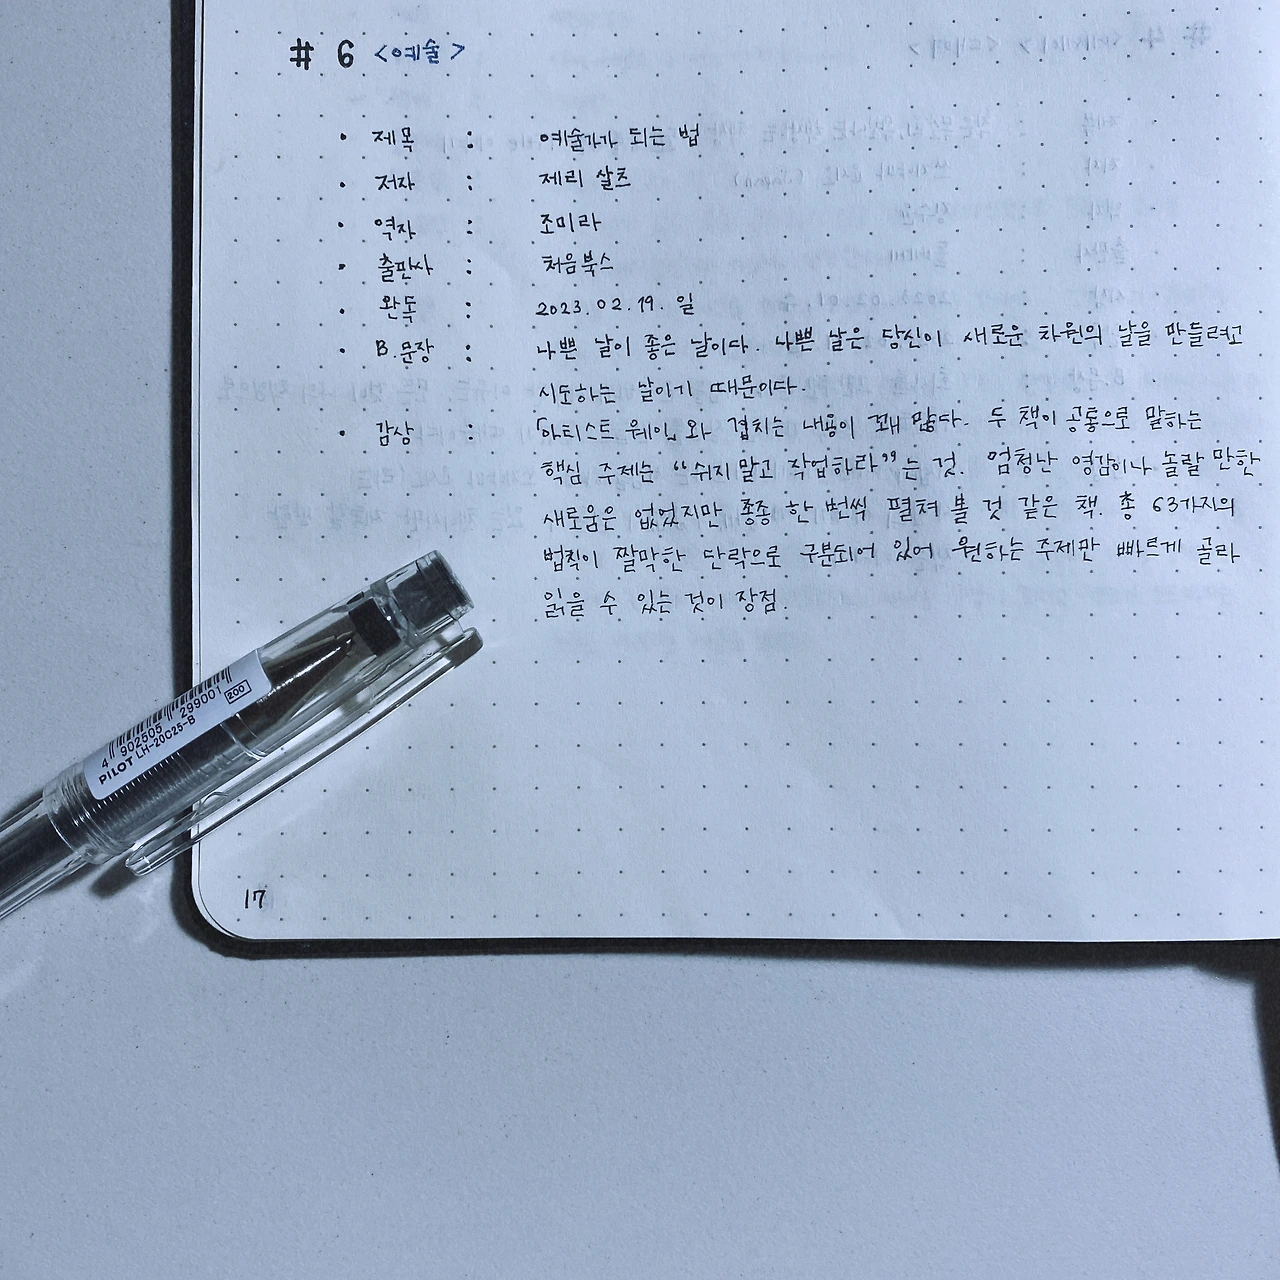 # 6 <예술>
· 제목 : 예술가가 되는 법
· 저자 : 제리 살츠
· 역자 : 조미라
· 출판사 : 처음북스
· 완독 : 2023. 02. 19. 일
· B.문장 : 나쁜 날이 좋은 날이다. 나쁜 날은 당신이 새로운 차원의 날을 만들려고
시도하는 날이기 때문이다.
· 감상 : 「아티스트 웨이」와 겹치는 내용이 꽤 많다. 두 책이 공통으로 말하는
핵심 주제는 “쉬지 말고 작업하라”는 것. 엄청난 영감이나 놀랄 만한
새로움은 없었지만 종종 한 번씩 펼쳐 볼 것 같은 책. 총 63가지의
법칙이 짤막한 단락으로 구분되어 있어 원하는 주제만 빠르게 골라
읽을 수 있는 것이 장점.
4 902505 299001
200
PILOT LH-20C25-B
17